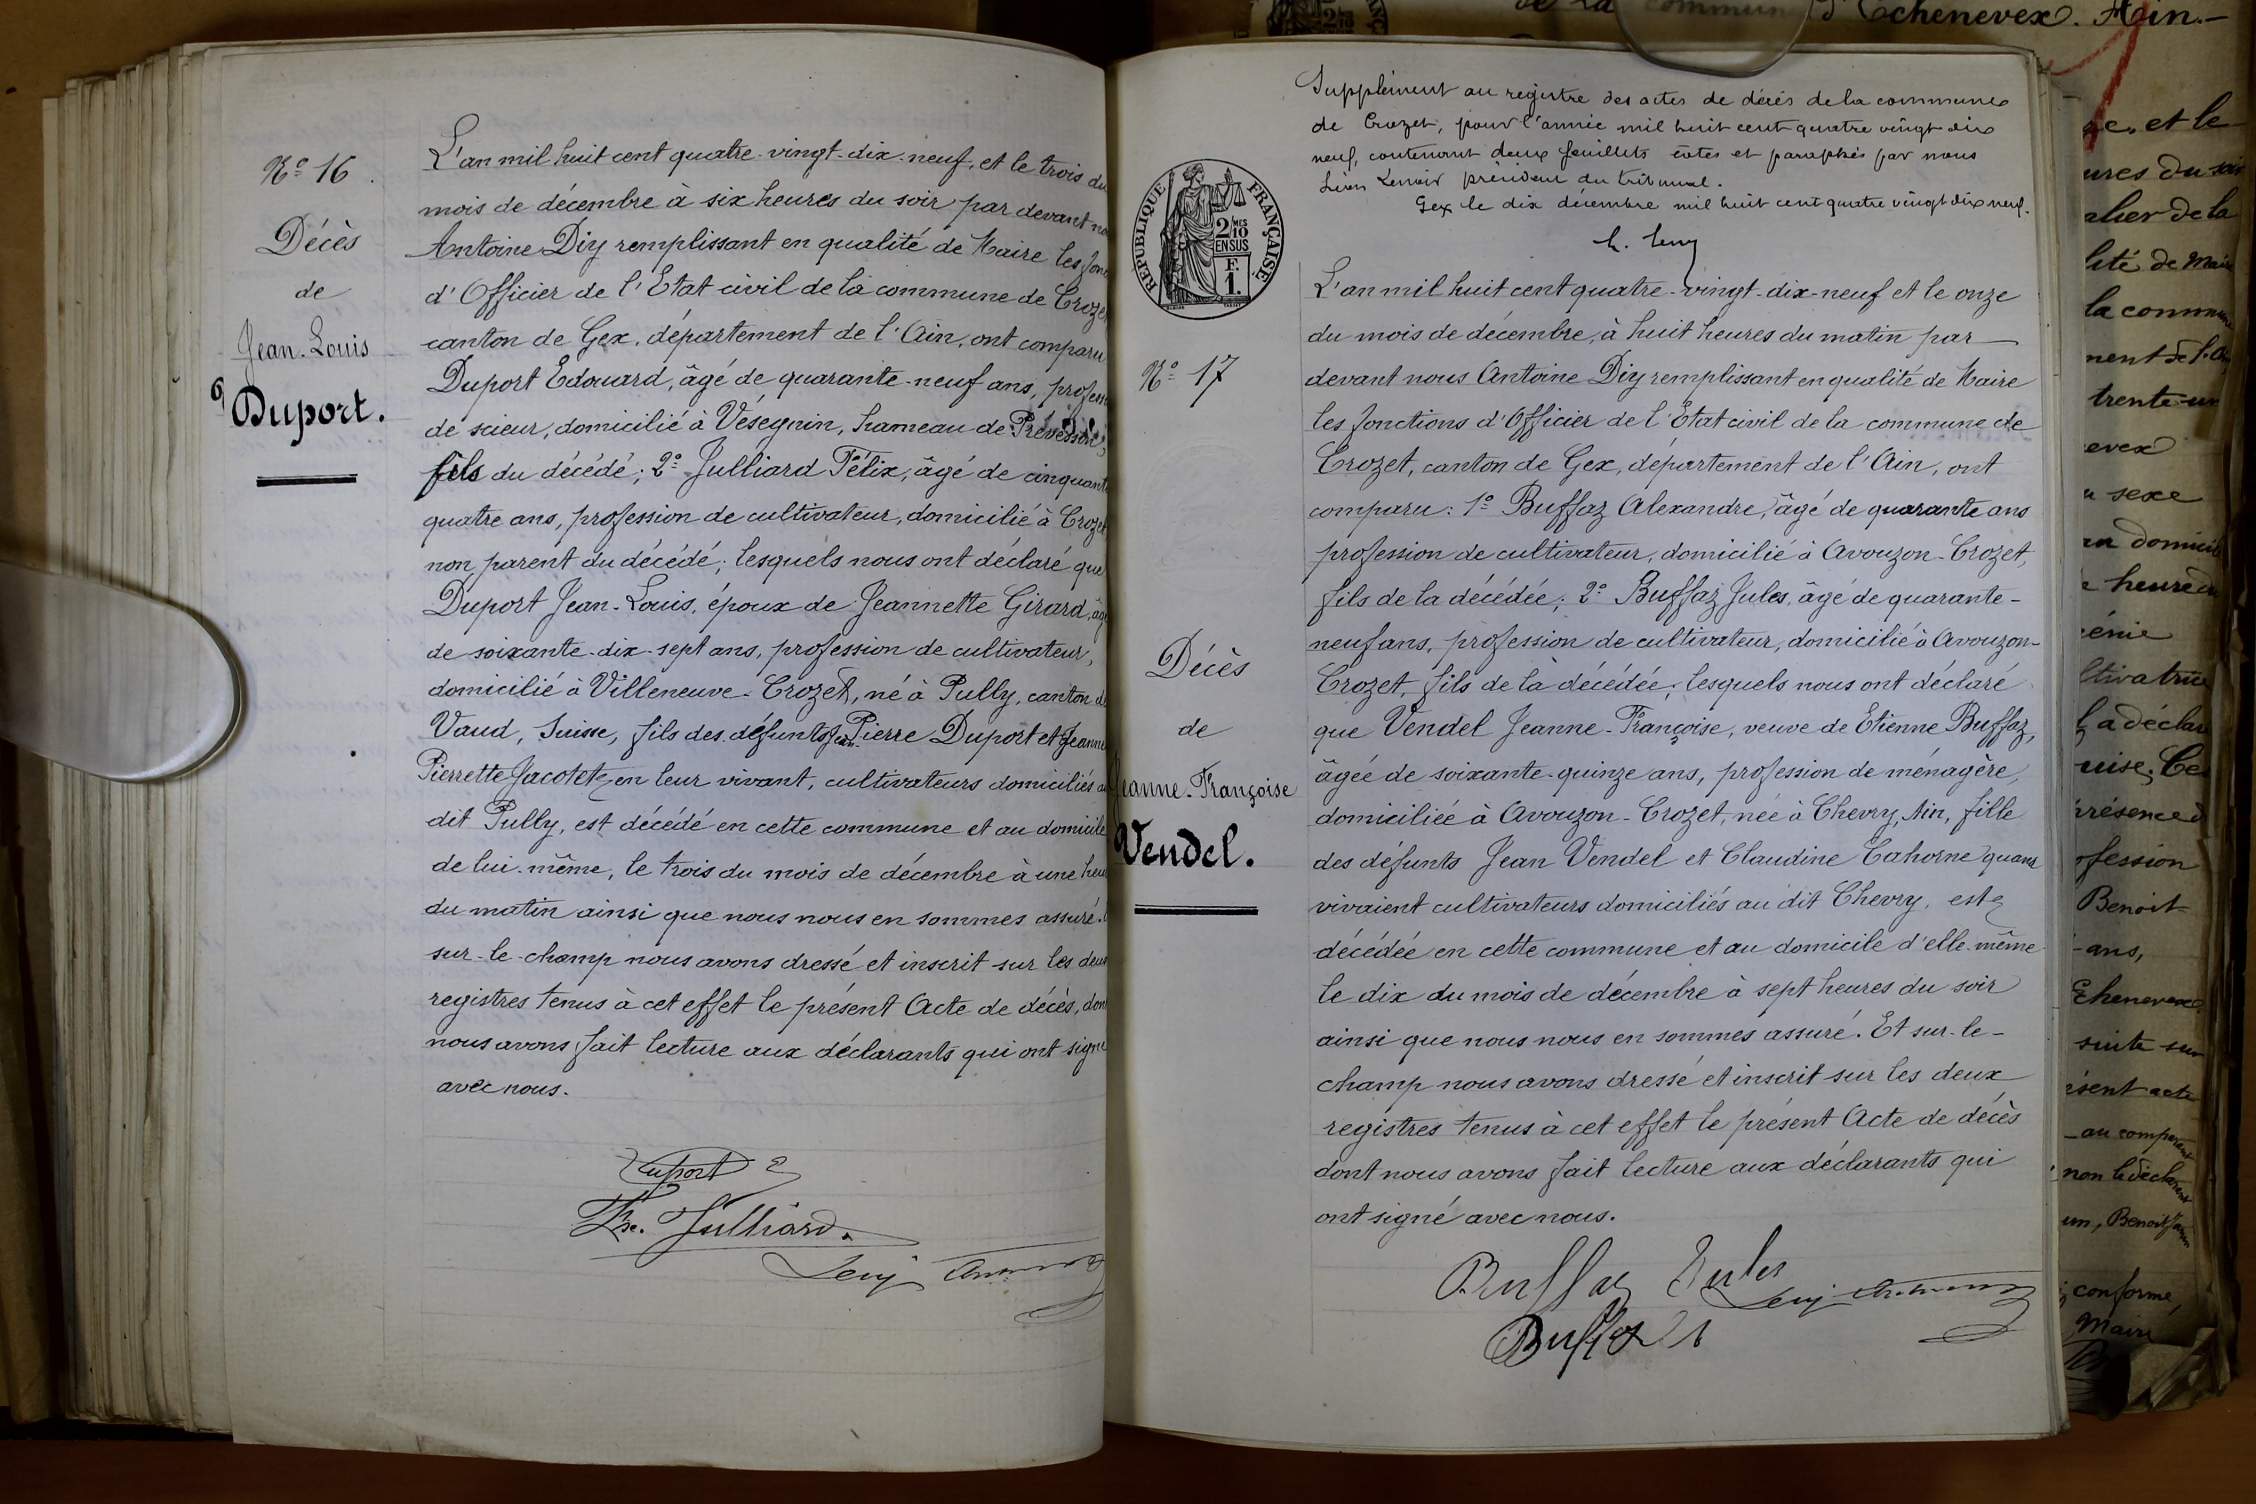 N° 16
Décès
de
Jean-Louis
Duport.
L'an mil huit cent quatre-vingt-dix-neuf, et le trois du
mois de décembre à six heures du soir par devant
Antoine Diy remplissant en qualité de Maire les
d'Officier de l'Etat civil de la commune de Crozet
canton de Gex, département de l'Ain, ont comparu
Duport Edouard, âgé de quarante-neuf ans,
de scieur, domicilié à Vésegnin, hameau de Prévessin,
fils du décédé; 2° Julliard Félix, âgé de cinquante
quatre ans, profession de cultivateur, domicilié à Crozet
non parent du décédé; lesquels nous ont déclaré que
Duport Jean-Louis, époux de Jeannette Girard, âgé
de soixante-dix-sept ans, profession de cultivateur,
domicilié à Villeneuve-Crozet, né à Pully, canton de
Vaud, Suisse, fils des défunts Jean Pierre Duport et Jeanne
Pierrette Jacotet en leur vivant, cultivateurs domiciliés au
dit Pully, est décédé en cette commune et au domicile
de lui-même, le trois du mois de décembre à une heure
du matin ainsi que nous nous en sommes assuré.
sur-le-champ nous avons dressé et inscrit sur les deux
registres tenus à cet effet le présent Acte de décès, dont
nous avons fait lecture aux déclarants qui ont signé
avec nous.
Duport
Julliard.
RÉPUBLIQUE FRANÇAISE
2/10 EN SUS
F.
1.
Supplément au registre des actes de décès de la commune
de Crozet, pour l'année mil huit cent quatre vingt dix
neuf, contenant deux feuillets cotés et paraphés par nous
président du tribunal.
Gex le dix décembre mil huit cent quatre vingt dix neuf.
N° 17
Décès
de
Jeanne-Françoise
Vendel.
L'an mil huit cent quatre-vingt-dix-neuf et le onze
du mois de décembre, à huit heures du matin par
devant nous Antoine Diy remplissant en qualité de Maire
les fonctions d'Officier de l'Etat civil de la commune de
Crozet, canton de Gex, département de l'Ain, ont
comparu: 1° Buffaz Alexandre, âgé de quarante ans
profession de cultivateur, domicilié à Avouzon-Crozet,
fils de la décédée; 2° Buffaz Jules, âgé de quarante-
neuf ans, profession de cultivateur, domicilié à Avouzon-
Crozet, fils de la décédée; lesquels nous ont déclaré
que Vendel Jeanne-Françoise, veuve de Etienne Buffaz,
âgée de soixante-quinze ans, profession de ménagère,
domiciliée à Avouzon-Crozet, née à Chevry, Ain, fille
des défunts Jean Vendel et Claudine Cahorne quand
vivaient cultivateurs domiciliés au dit Chevry, est
décédée en cette commune et au domicile d'elle-même
le dix du mois de décembre à sept heures du soir
ainsi que nous nous en sommes assuré. Et sur-le-
champ nous avons dressé et inscrit sur les deux
registres tenus à cet effet le présent Acte de décès
dont nous avons fait lecture aux déclarants qui
ont signé avec nous.
Buffaz Jules
Buffaz
de la commune d'Echenevex. Ain.
et le
alier de la
lité de Maire
la commune
trente-un
evex
sexe
domicile
heure
énie
a déclaré
présence
Benoit
ans,
Echenevex.
suite sur
acte
au comparant
Benoit
conforme,
Maire